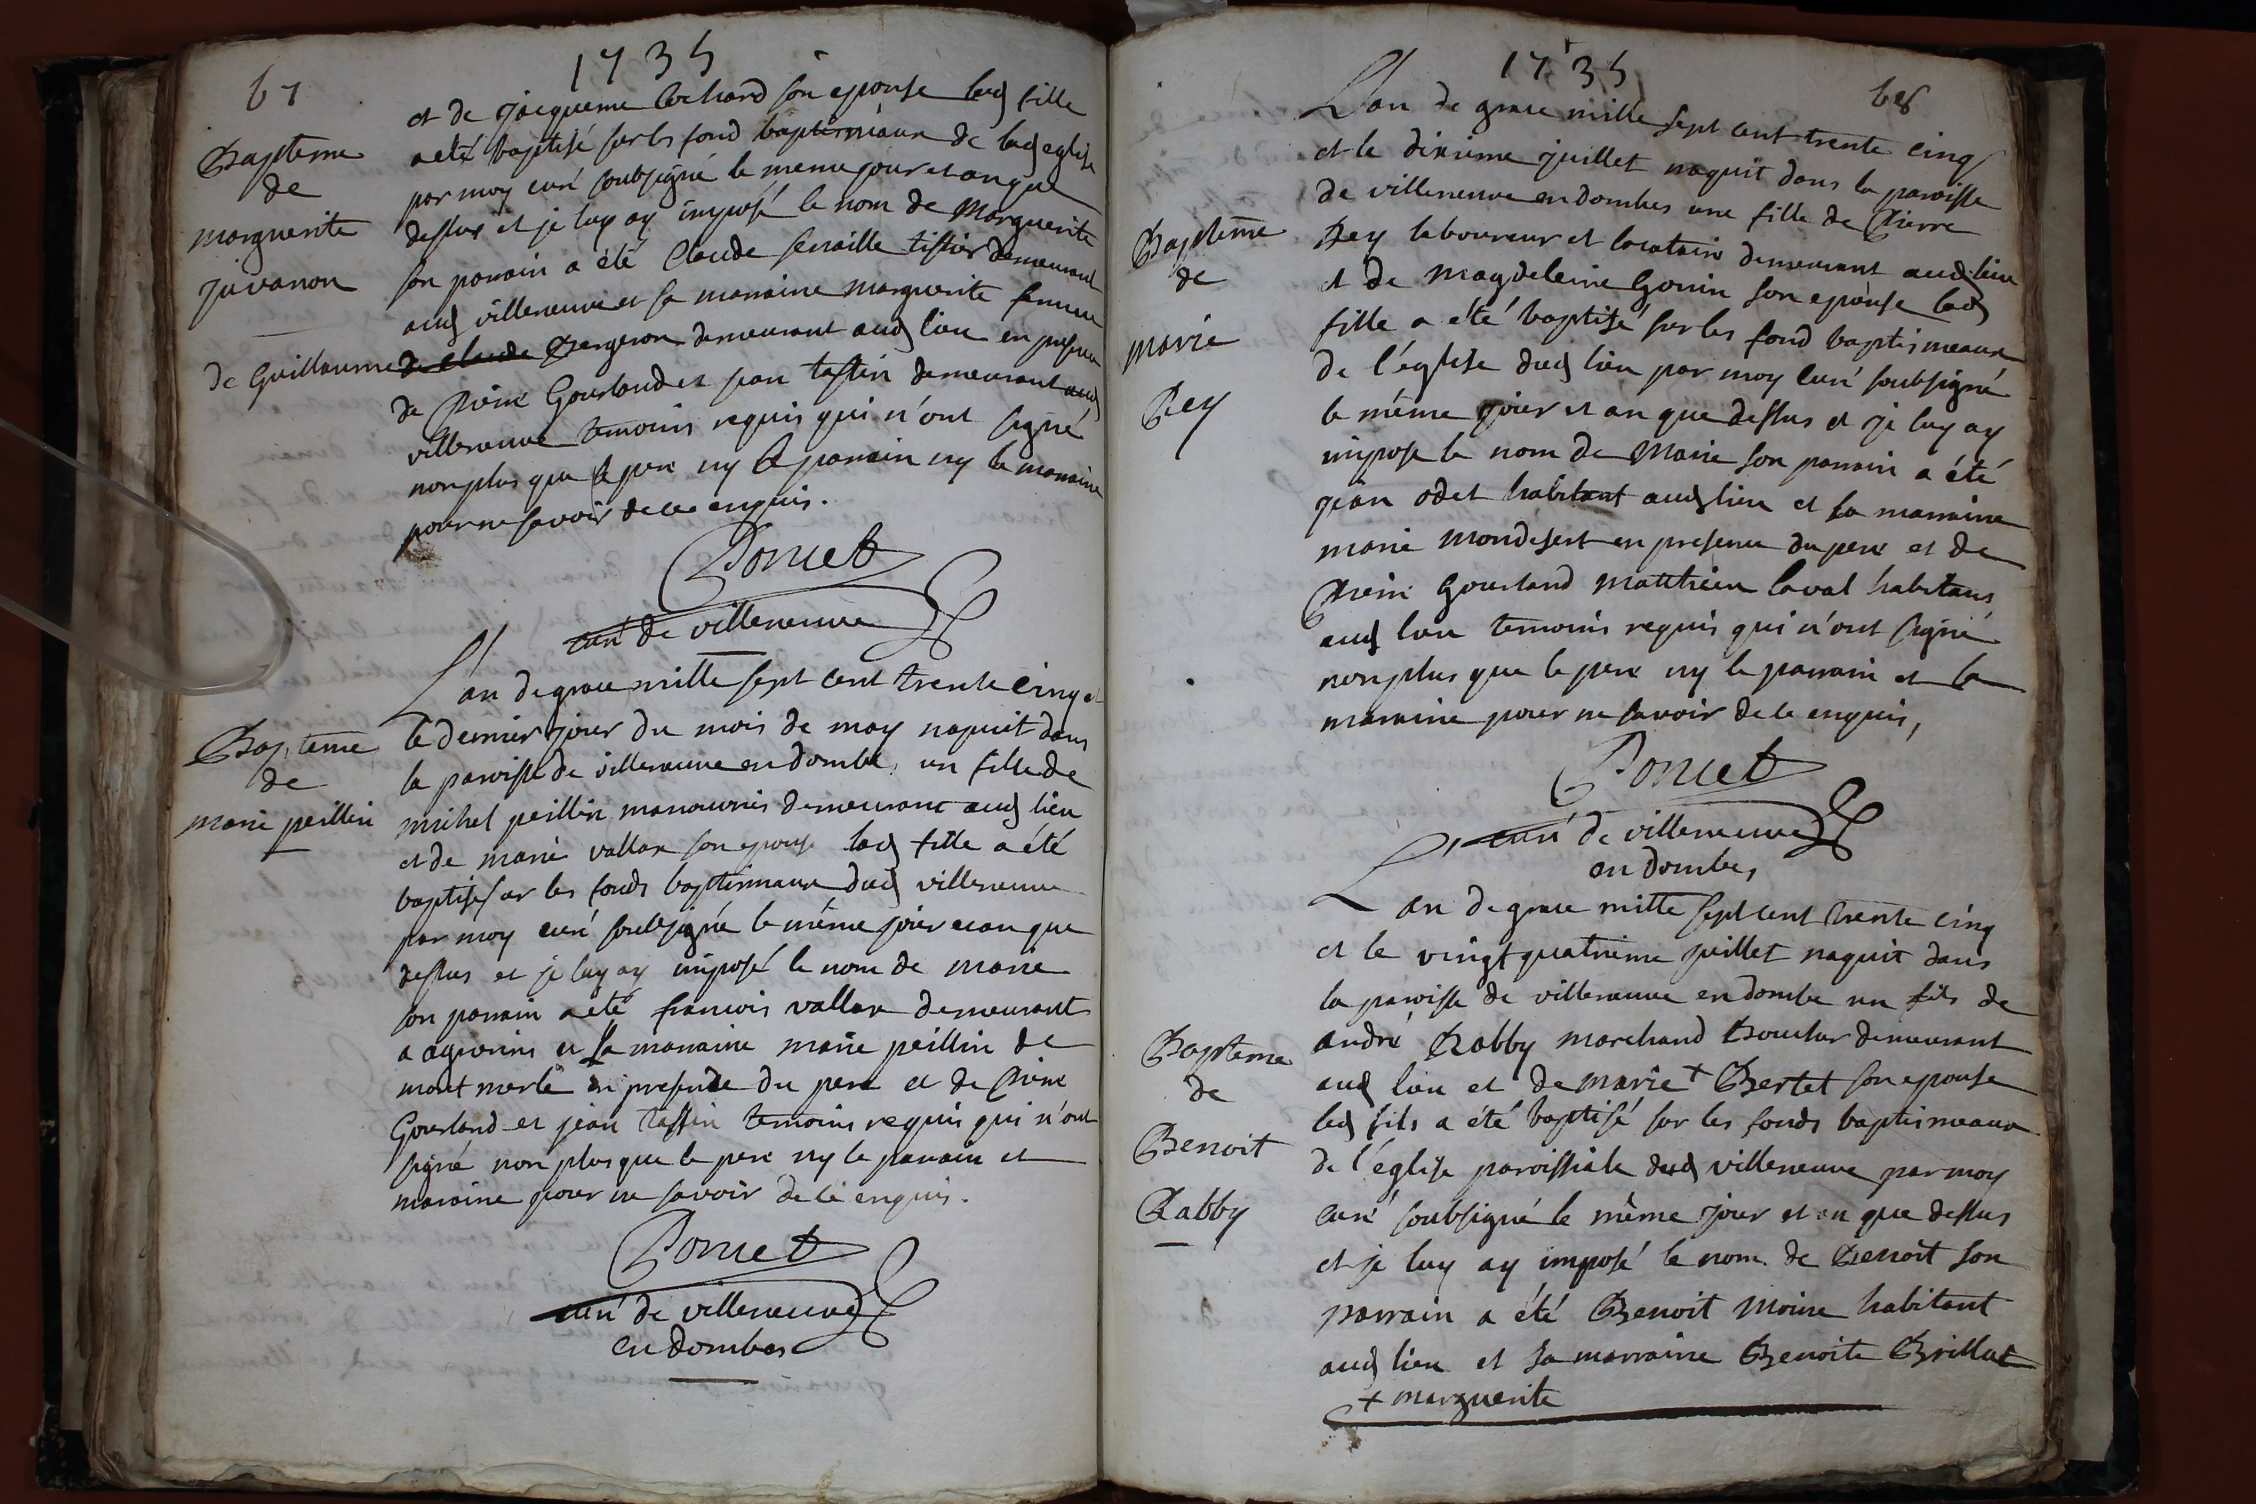 67
1735
Bapteme
de
marguerite
Juvanon
de Guillaume
et de jacqueme Cochard son epouse lad fille
a eté baptisé sur les fond baptismeaux de lad eglise
par moy curé soubsigné le meme jour et an que
dessus et je luy ay imposé le nom de Marguerite
son parrain a été Claude serraille tissier demeurant
aud villeneuve et sa marraine marguerite femme
de claude Bergeron demeurant aud lieu en presence
de Pierre Gourland et jean tassin demeurant aud
villeneuve temoins requis qui n'ont signé
non plus que le pere ny le parrain ny la marraine
pour ne savoir de ce enquis.
Poncet
curé de villeneuve
Bapteme
de
marie peillin
L'an de grace mille sept cent trente cinq et
le dernier jour du mois de may naquit dans
la paroisse de villeneuve en dombe, un fille de
michel peillin manouvrier demeurant aud lieu
et de marie vallax son epouse lad fille a été
baptisé sur les fonds baptismaux dud villeneuve
par moy curé soubsigné le même jour et an que
dessus et je luy ay imposé le nom de marie
son parrain a eté francois vallax demeurant
a agnerins et sa marraine marie peillin de
mont merle en presence du pere et de Pierre
Gourland et jean tassin temoins requis qui n'ont
signé non plus que le pere ny le parrain et
maraine pour ne savoir de ce enquis.
Poncet
curé de villeneuve
en dombes
1735
68
Bapteme
de
marie
Rey
L'an de grace mille sept cent trente cinq
et le dixieme juillet naquit dans la paroisse
de villeneuve en dombes une fille de Pierre
Rey laboureur et locataire demeurant aud lieu
et de Magdeleine Gonin son epouse lad
fille a été baptisé sur les fond baptismeaux
de l'église dud lieu par moy curé soubsigné
le même jour et an que dessus et je luy ay
imposé le nom de Marie son parrain a été
jean odet habitant aud lieu et sa marraine
marie mondesert en presence du pere et de
Pierre Gourland Matthieu laval habitans
aud lieu temoins requis qui n'ont signé
non plus que le pere ny le parrain et la
marraine pour ne savoir de ce enquis,
Poncet
curé de villeneuve
en dombes
Bapteme
de
Benoit
Rabby
L'an de grace mille sept cent trente cinq
et le vingt quatrieme juillet naquit dans
la paroisse de villeneuve en dombe un fils de
andré Rabby marchand Boucher demeurant
aud lieu et de marie + Bertet son epouse
led fils a été baptisé sur les fonds baptismeaux
de l'église paroissiale dud villeneuve par moy
curé soubsigné le même jour et an que dessus
et je luy ay imposé le nom de Benoit son
parrain a été Benoit Moine habitant
aud lieu et sa marraine Benoite Brillat
+ marguerite